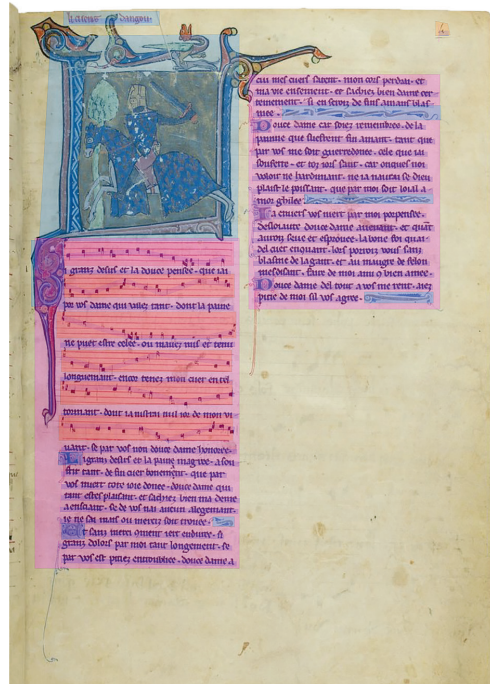 Li cuens dangou.
i granz desirs et la douce pensee. que iai
por vos dame qui valez tant. dont la paine
ne puet estre celee. ou mavez mis et tenu
longuement. encor tenez mon cuer en tel
tormant. dont ia nistrai nul ior de mon vi
uant. se par vos non douce dame honoree.
Li granz desirs et la paine
sosfrir tant. de fin cuer bonement. que par
vos mient tote ioie donee. douce dame qui
tant estes plaisant. et sachiez bien ma dame
a enscient. se de vos nai aucun alegemant.
ie ne sai mais ou merci soit trouee.
Et sanz merci quient iert enduree. si
granz dolors par moi tant longement. se
par vos est pitiez entroubliee. douce dame a
cui mes cuers satent. mon cors perdrai. et
ma vie ensement. et sachiez bien dame cer
teinement. si en seroiz de fins amans blas
mee.
Douce dame car soiez remenbree. de la
painne que suefrent fin amant. tant que
par vos me soit guerredonee. cele que iai
souferte. et toz iors sant. car onques noi
voloir ne hardimant. ne ia naurai se dieu
plaist le poissant. que par moi soit loial a
mor ghilee.
Ia envers vos niert par moi porpensee.
desloiaute douce dame avenant. et quant
auroiz seue et esprouee. la bone foi quai
del cuer enquerant. lors porroiz vous sanz
blasme de la gent. et au maugre de felon
mesdisant. faire de moi ami o bien amee.
Douce dame del tout a vos me rent. aiez
pitie de moi sil vos agree.